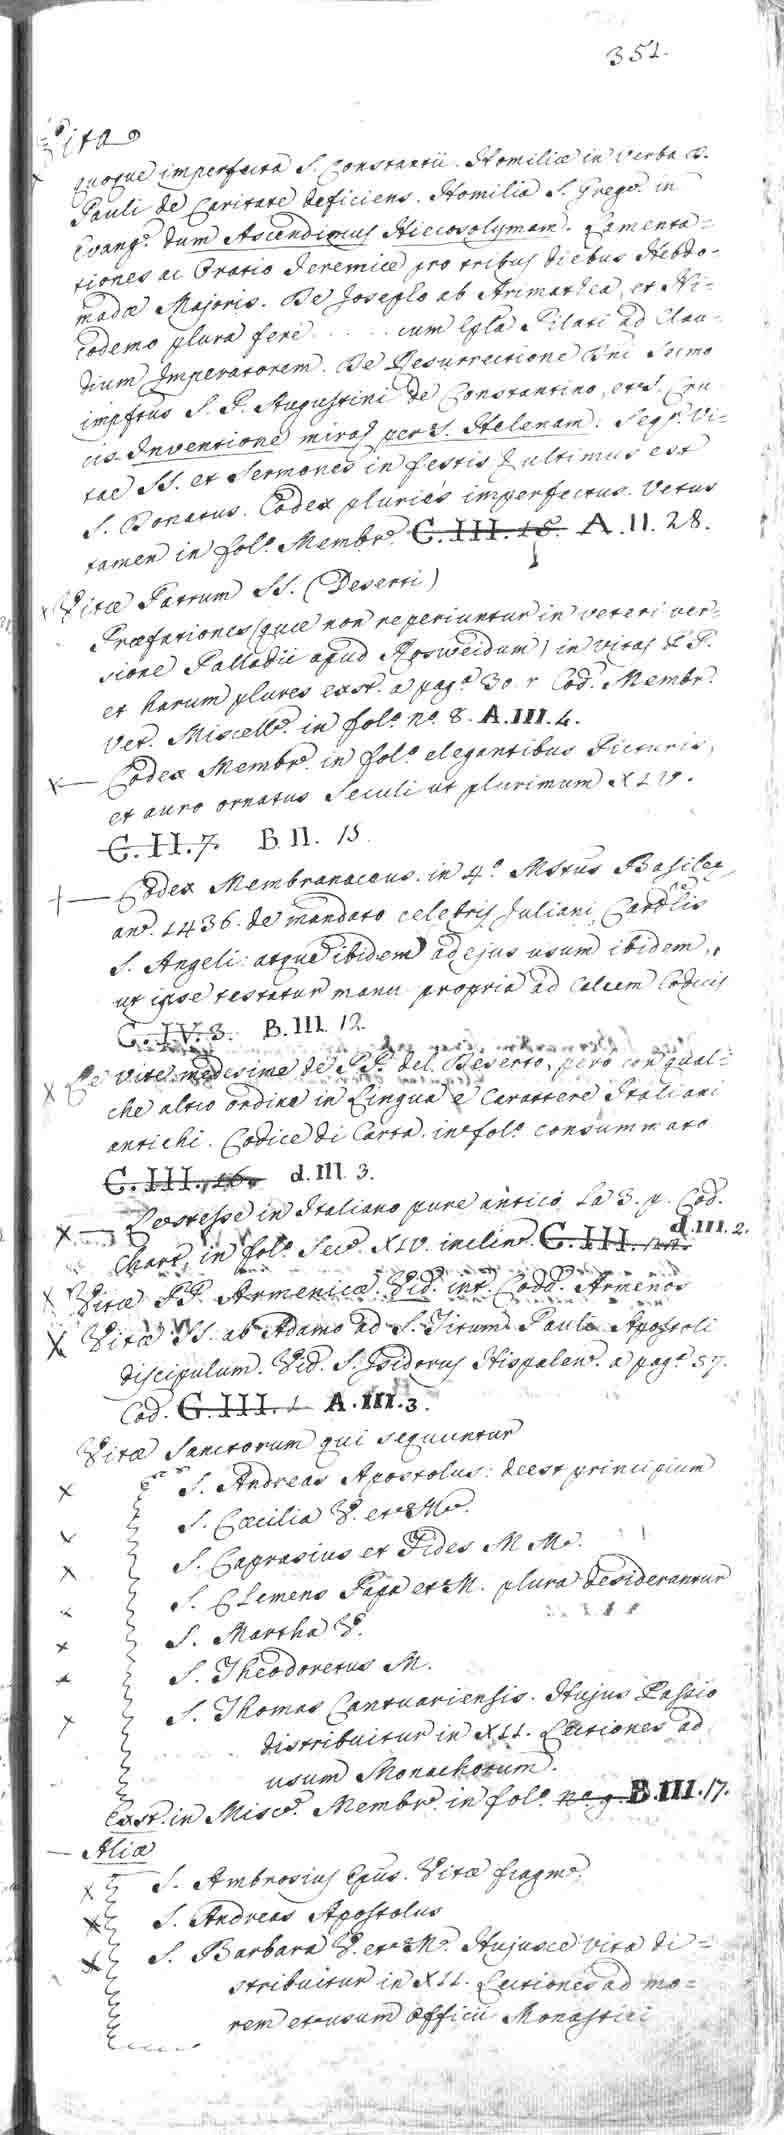 351.
Vita
quoque imperfecta S. Constantii. Homiliæ in verba B.
Pauli de Caritate deficiens. Homilia S. Gregº. in
Evangº. dum Ascendimus Hierosolymam. Lamenta=
tiones ac Oratio Jeremiæ pro tribus diebus Hebdo=
madæ Majoris. De Josepho ab Arimathea, et Ni=
codemo plura fere . . . . . cum Epla Pilati ad Clau=
dium Imperatorem. De Resurrectione Dni Sermo
impftus S. P. Augustini de Constantino, et S. Cru
cis Inventione per S. Helenam. Seqr. Vi=
tae SS. et Sermones in festis, & ultimus est
S. Donatus. Codex pluries imperfectus. Vetus
tamen in folº. Membrº. C. III. 18. A. II. 28.
Vitæ Patrum SS. (Deserti)
Præfationes (quæ non reperiuntur in veteri ver=
sione Palladii apud Rosweidum) in vitas PP.
et harum plures exst. a pagª 30. r Codº. Membrº.
Vet. Miscellº. in folº. nº. 8. A. III. 4.
— Codex Membrº. in folº. elegantibus Picturis,
et auro ornatus Seculi ut plurimum XIV.
C. II. 7. B. II. 15
— Codex Membranaceus in 4º. Mstus Basileæ
anº. 1436. de mandato celebris Juliani Cardlis
S. Angeli: atque ibidem ad ejus usum ibidem,
ut ipse testatur manu propria ad Calcem Codicis
C. IV. 3. B. III. 12.
Le Vite medesime de PP. del Deserto, pero con qual=
che altro ordine in Lingua e Carattere Italiani
antichi. Codice di Carta in folº. consummato
C. III. 16. d. III. 3.
— Le stesse in Italiano pure antico la 3. p. Cod.
Chart. in folº. Secº. XIV. inclinº. C. III. 22. d. III. 2.
Vitæ PP. Armenicæ. Vid. int. Codd. Armenos
Vitæ SS. ab Adamo ad S. Titum Pauli Apostoli
discipulum. Vid. S. Isidorus Hispalenº. a pagª 57.
Cod. G. III. 1 A. III. 3.
Vitæ Sanctorum qui sequuntur
S. Andreas Apostolus: deest principium
S. Cæcilia V. et Mº.
S. Caprasius et Fides M Mº.
S. Clemens Papa et M. plura desiderantur
S. Martha V.
S. Theodoretus M.
S. Thomas Cantuariensis. Hujus Passio
distribuitur in XII. Lectiones ad
usum Monachorum.
Exst. in Miscº. Membrº. in folº. nº. 9. B. III. 17.
— Aliæ
S. Ambrosius Epus. Vitæ fragmº.
S. Andreas Apostolus
S. Barbara V. et Mº. Hujusce vita di=
stribuitur in XII. Lectiones ad mo=
rem et usum Officii Monastici